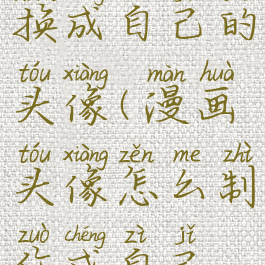 换成自己的
tóu xiàng màn huà
头像(漫画
tóu xiàng zěn me zhì
头像怎么制
zuò chéng zì jǐ
作成自己